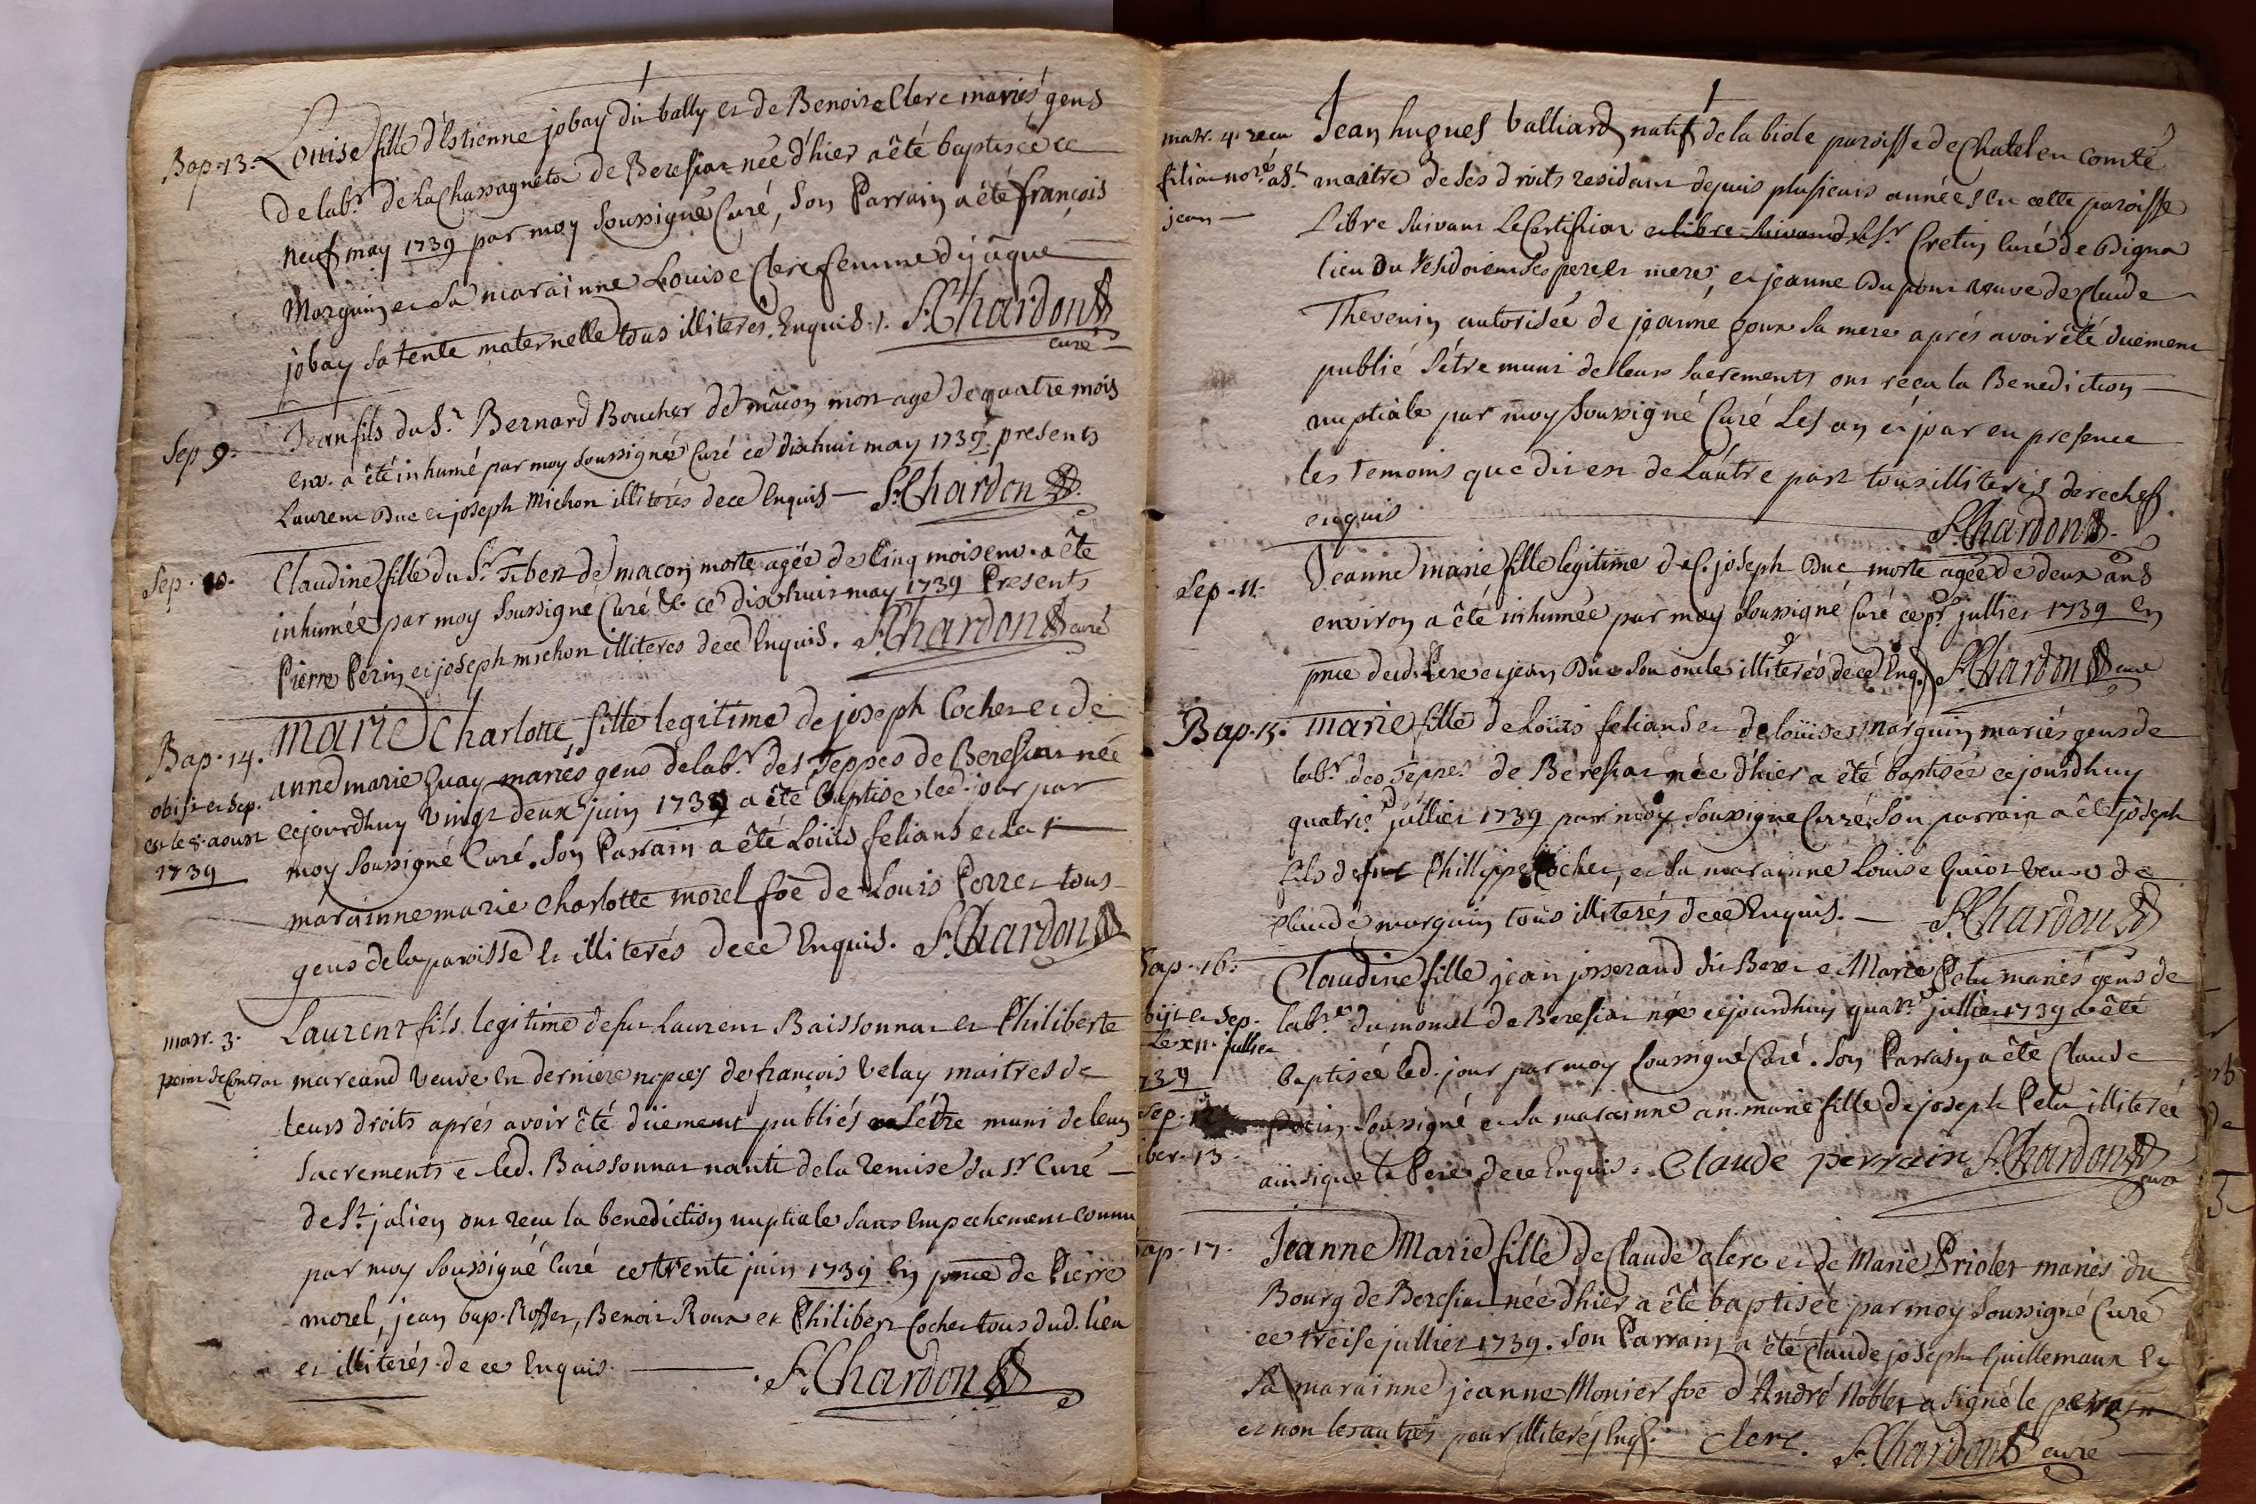 Bap. 13. Louise fille d'Estienne jobay dit bally et de Benoite Clerc mariés gens
de lab.r de la Chassagnete de Beresiat née d'hier a êté baptisée ce
neuf may 1739 par moy soussigné Curé, son Parrain a été françois
Morguin et sa marainne Louise Clerc femme dijâque
jobay sa tente maternelle tous illiterés. Enquis. S.Chardon
curé
Sep 9. Jean fils du S.r Bernard Boucher de mâcon mort agé de quatre mois
env. a êté inhumé par moy soussigné Curé ce dixhuit may 1739 presents
Laurent Duc et joseph Michon illiterés de ce Enquis S.Chardon
Sep. 10. Claudine fille du S.r de macon morte agée de Cinq mois env. a êté
inhumée par moy soussigné Curé &c ce dixhuit may 1739 Presents
Pierre Perin et joseph michon illiteres dece Enquis. S.Chardon curé
Bap. 14. Marie Charlotte fille legitime de joseph Cochet et de
anne marie Guay mariés gens delab.r des Teppes de Beresiat née
obijt et Sep. cejourdhuy vingt deux juin 1739 a êté baptise led. jour par
est le 8. aoust moy soussigné Curé. Son Parrain a êté Loüis feliand et la
1739
marainne marie Charlotte morel foê de Louis Perret tous
gens de la paroisse et illiterés dece Enquis. S.Chardon
marr. 3. Laurent fils legitime defut Laurent Baissonnat et Philiberte
point de Contrat mareand veuve en derniere nopces defrançois velay maitres de
leurs droits aprés avoir êté düement publiés sétre muni de leurs
Sacrements e led. Baissonnat nanti dela remise du Sr Curé
de St julien ont recu la benediction nuptiale sans Empechement connu
par moy soussigné Curé ce trente juin 1739 En pnce de Pierre
morel, jean bap. Roffet, Benoit Roux et Philibert Cochet tous dud. lieu
et illiterés de ce Enquis. S.Chardon
marr. 4. Jean hugues valliard natif de la biole paroisse de Chatel en comté
maitre de ses droits residant depuis plusieurs années en cette paroisse
jean Libre suivant Le Certificat et libre suivand S.r Cretin Curé de Digna
lieu du residoient ses pere et mere, et jeanne Dupont veuve de Claude
Thevenin autorisée de jeanne goux sa mere aprés avoir êté duement
publié sétre muni de leurs sacrements ont reçu la Benediction
nuptiale par moy soussigné Curé Les an et jour en presence
les Temoins que dit est de Lautre part tous illiterés derechef
enquis S.Chardon
Sep. 11. Jeanne marie fille legitime de joseph Duc morte agée de deux ans
environ a êté inhumée par moy soussigné Curé ce pr. jullier 1739 En
pnce dud. Pere et jean Duc son oncle illiterés de ce Enq. S.Chardon curé
Bap. 15. Marie fille de Loüis feliand et de loüise Morguin mariés gens de
lab.r des Teppes de Béresiat née d'hier a êté baptisée cejourdhuy
quatrie. jullier 1739 par moy soussigné Curé. Son parrain a êté joseph
fils de fut Phillippe Cochet, et sa marainne Louise Guiot veuve de
Claude morguin tous illiterés dece Enquis. S.Chardon
Bap. 16. Claudine fille jean josserand dit Bere e Marie Petu mariés gens de
bijt et Sep. lab.r du monet de Beresiat née cejourdhuy quatr. jullier 1739 a êté
Le XII. jullier baptisée led. jour par moy soussigné Curé. Son Parrain a êté Claude
739
Sep. 12 soussigné et sa marainne an. marie fille de joseph Petu illiterée
iber. 13. ainsique le Pere de ce Enquis. Claude perrain S.Chardon
curé
ap. 17. Jeanne Marie fille de Claude clerc et de Marie Priolet mariés du
Bourg de Beresiat née d'hier a êté baptisée par moy soussigné Curé
ce treise jullier 1739. Son Parrain a êté Claude joseph Guillemaux Et
sa marainne jeanne Monier foê d'André Noblet a signé le parrain
et non les autres pour illiterés Enqs. Clerc. S.Chardon curé